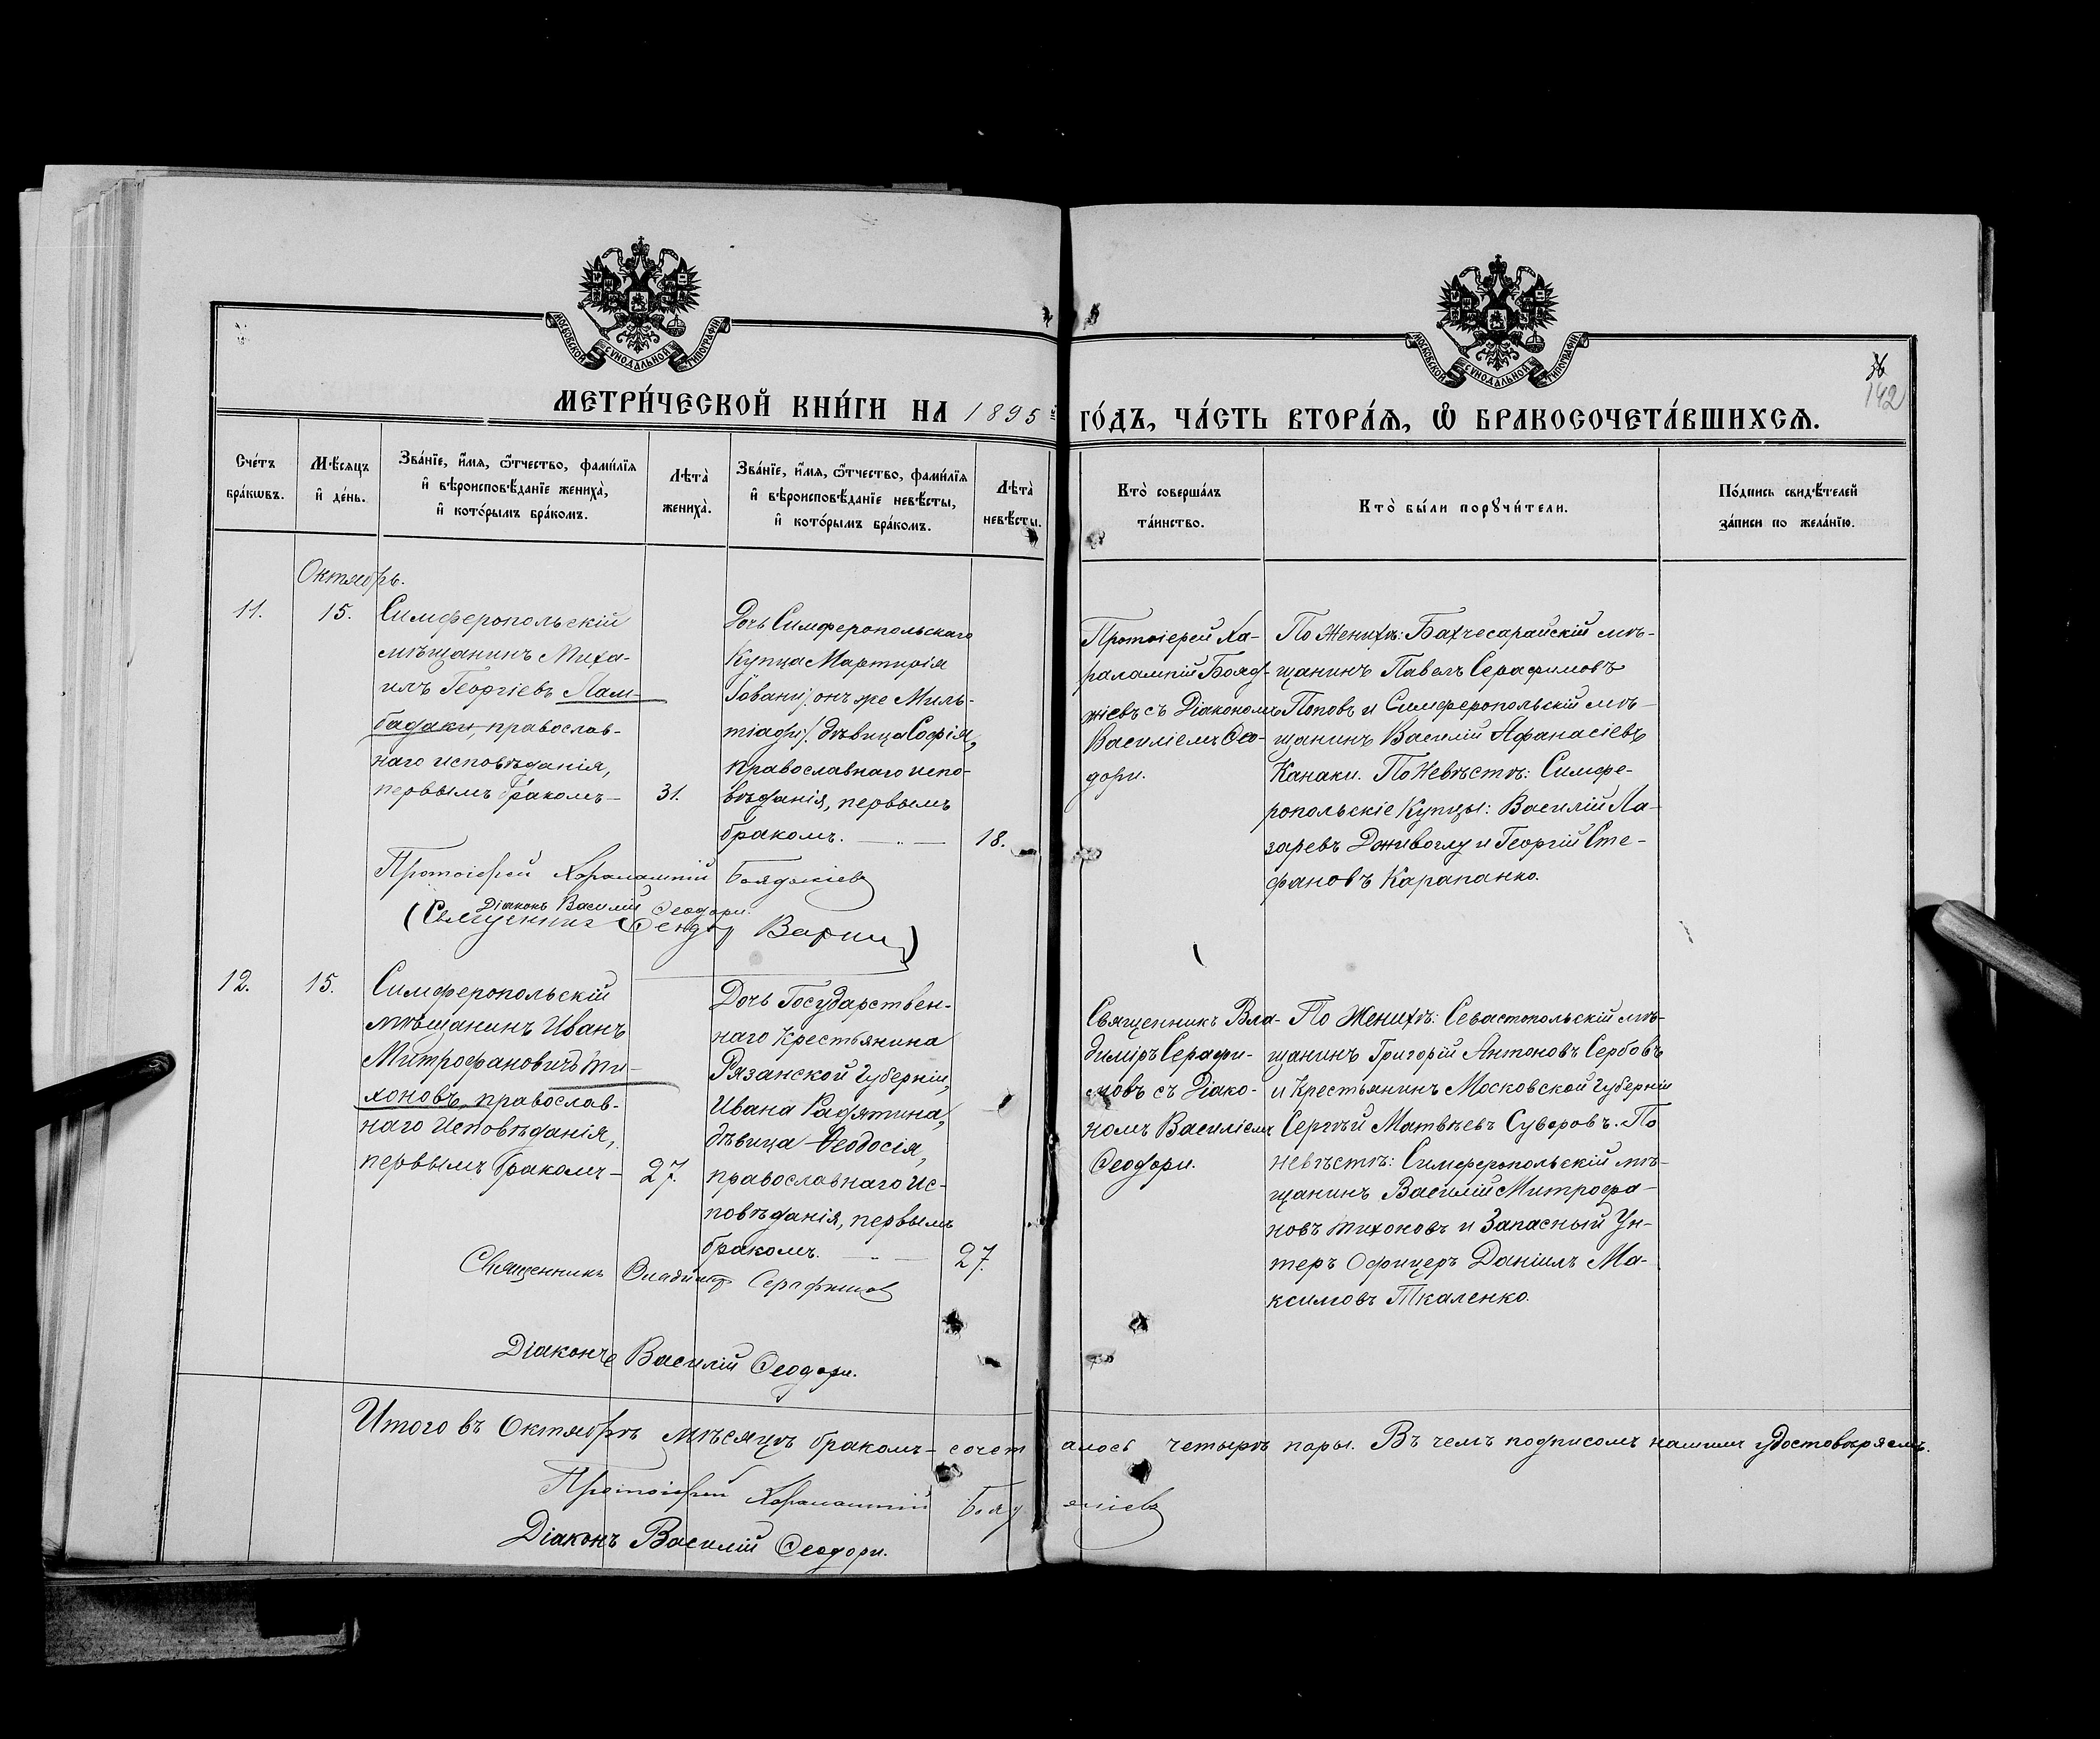 МОСКОВСКОЙ СУНОДАЛЬНОЙ ТИПОГРАФІИ
МОСКОВСКОЙ СУНОДАЛЬНОЙ ТИПОГРАФІИ
142
МЕТРИ́ЧЕСКОЙ КНИ́ГИ НА 1895 й ГО́ДЪ, ЧА́СТЬ ВТОРА́Ѧ, Ѽ БРАКОСОЧЕТА́ВШИХСѦ.
Сче́тъ
бра́кѡвъ.
Мѣ́сѧцъ
и҆ де́нь.
Зва́нїе, и҆́мѧ, ѻ҆́тчество, фами́лїѧ
и҆ вѣроисповѣ́данїе жениха̀,
и҆ кото́рымъ бра́комъ.
Лѣта̀
жениха̀.
Зва́нїе, и҆́мѧ, ѻ҆́тчество, фами́лїѧ
и҆ вѣроисповѣ́данїе невѣ́сты,
и҆ кото́рымъ бра́комъ.
Лѣта̀
невѣ́сты.
Кто̀ соверша́лъ
та́инство.
Кто̀ бы́ли порꙋчи́тели.
По́дпись свидѣ́телей
за́писи по жела́нїю.
Октябрь.
11.
15.
Симферопольскій
мѣщанинъ Миха-
илъ Георгіевъ Лам-
бадаки, православ-
наго исповѣданія,
первымъ бракомъ—
31.
Дочь Симферопольскаго
Купца Мартирія
Іовани /: онъ же Миль-
тіади/: дѣвица Софія,
православнаго испо-
вѣданія, первымъ
бракомъ. — " —
18.
Протоіерей Ха-
ралампій Бояд-
жіевъ съ Діакономъ
Василіемъ Ѳео-
дори.
По Женихѣ: Бахчесарайскій мѣ-
щанинъ Павелъ Серафимовъ
Поповъ и Симферопольскій мѣ-
щанинъ Василій Афанасіевъ
Канаки. По Невѣстѣ: Симфе-
ропольскіе Купцы: Василій Ла-
заревъ Дживоглу и Георгій Сте-
фановъ Карапанко.
Протоіерей Харалампій Бояджіевъ
Діаконъ Василій Ѳеодори.
(Священникъ Варши)
12.
15.
Симферопольскій
мѣщанинъ Иванъ
Митрофановичъ Ти-
хоновъ, православ-
наго Исповѣданія,
первымъ бракомъ—
27.
Дочь Государствен-
наго Крестьянина
Рязанской Губерніи,
Ивана Радятина,
дѣвица Ѳеодосія,
православнаго Ис-
повѣданія, первымъ
бракомъ. — " —
27.
Священникъ Вла-
диміръ Серафи-
мовъ съ Діако-
номъ Василіемъ
Ѳеодори.
По Женихѣ: Севастопольскій мѣ-
щанинъ Григорій Антоновъ Сербовъ
и Крестьянинъ Московской Губерніи
Сергѣй Матвѣевъ Суворовъ. По
невѣстѣ: Симферопольскій мѣ-
щанинъ Василій Митрофа-
новъ Тихоновъ и Запасный Ун-
теръ Офицеръ Даніилъ Ма-
ксимовъ Ткаленко.
Священникъ Владиміръ Серафимовъ
Діаконъ Василій Ѳеодори.
Итого въ Октябрѣ мѣсяцѣ бракомъ- сочеталось четырѣ пары. Въ чемъ подписомъ нашимъ удостовѣряемъ.
Протоіерей Харалампій Бояджіевъ
Діаконъ Василій Ѳеодори.